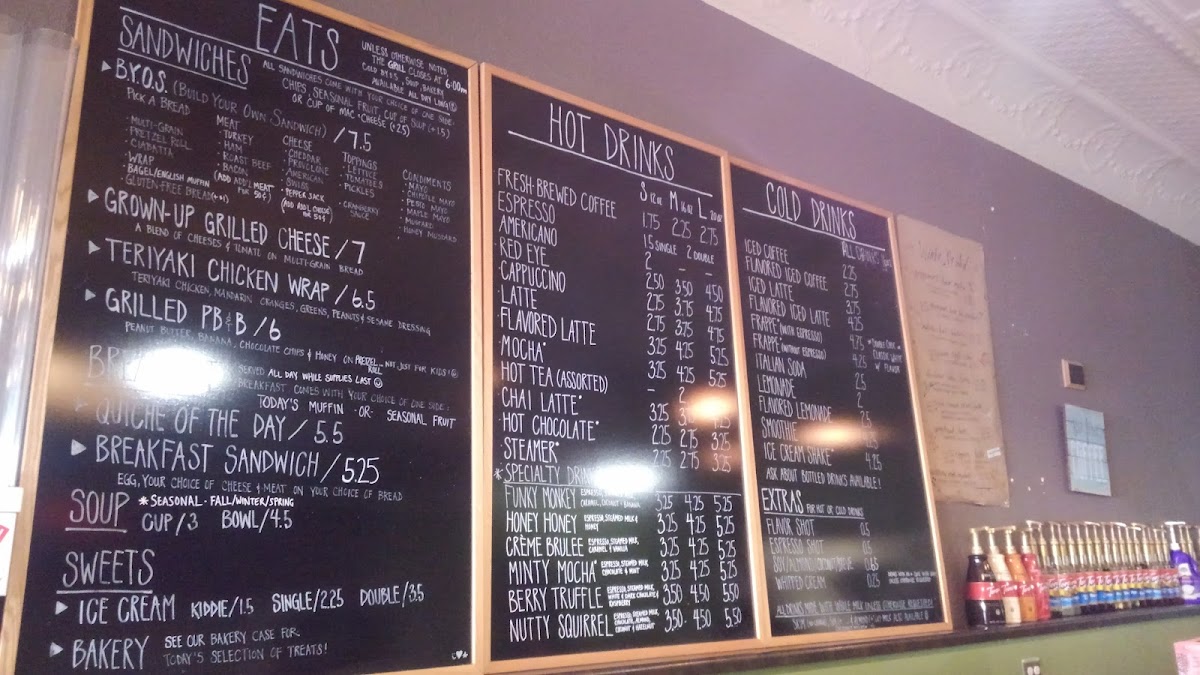 EATS
UNLESS OTHERWISE NOTED,
THE GRILL CLOSES AT 6:00PM
COLD BYOS, SOUP, BAKERY
AVAILABLE ALL DAY LONG!
SANDWICHES
ALL SANDWICHES COME WITH YOUR CHOICE OF ONE SIDE:
CHIPS, SEASONAL FRUIT, CUP OF SOUP (+1.5)
OR CUP OF MAC + CHEESE (+2.5)
B.Y.O.S. (BUILD YOUR OWN SANDWICH) / 7.5
PICK A BREAD
· MULTI-GRAIN
· PRETZEL ROLL
· CIABATTA
· WRAP
· BAGEL/ENGLISH MUFFIN
· GLUTEN-FREE BREAD (+$1)
MEAT
· TURKEY
· HAM
· ROAST BEEF
· BACON
(ADD ADD'L MEAT
FOR 50¢)
CHEESE
· CHEDDAR
· PROVOLONE
· AMERICAN
· SWISS
· PEPPER JACK
(ADD ADD'L CHEESE
FOR 50¢)
TOPPINGS
· LETTUCE
· TOMATOES
· PICKLES
· CRANBERRY
SAUCE
CONDIMENTS
· MAYO
· CHIPOTLE MAYO
· PESTO MAYO
· MAPLE MAYO
· MUSTARD
· HONEY MUSTARD
GROWN-UP GRILLED CHEESE / 7
A BLEND OF CHEESES & TOMATO ON MULTI-GRAIN BREAD
TERIYAKI CHICKEN WRAP / 6.5
TERIYAKI CHICKEN, MANDARIN ORANGES, GREENS, PEANUTS & SESAME DRESSING
GRILLED PB & B / 6
PEANUT BUTTER, BANANA, CHOCOLATE CHIPS & HONEY ON PRETZEL ROLL - NOT JUST FOR KIDS!
SERVED ALL DAY WHILE SUPPLIES LAST
BREAKFAST COMES WITH YOUR CHOICE OF ONE SIDE:
TODAY'S MUFFIN -OR- SEASONAL FRUIT
QUICHE OF THE DAY / 5.5
BREAKFAST SANDWICH / 5.25
EGG, YOUR CHOICE OF CHEESE & MEAT ON YOUR CHOICE OF BREAD
SOUP *SEASONAL - FALL/WINTER/SPRING
CUP / 3 BOWL / 4.5
SWEETS
ICE CREAM KIDDIE / 1.5 SINGLE / 2.25 DOUBLE / 3.5
BAKERY SEE OUR BAKERY CASE FOR
TODAY'S SELECTION OF TREATS!
HOT DRINKS
S 12 oz M 16 oz L 20 oz
· FRESH-BREWED COFFEE 1.75 2.25 2.75
· ESPRESSO 1.5 SINGLE 2 DOUBLE
· AMERICANO 2 - -
· RED EYE 2.50 3.50 4.50
· CAPPUCCINO 2.75 3.75 4.75
· LATTE 2.75 3.75 4.75
· FLAVORED LATTE 3.25 4.25 5.25
· MOCHA* 3.25 4.25 5.25
· HOT TEA (ASSORTED) - 2
· CHAI LATTE* 3.25
· HOT CHOCOLATE* 2.25 2.75 3.25
· STEAMER* 2.25 2.75 3.25
*SPECIALTY DRINKS
FUNKY MONKEY 3.25 4.25 5.25
HONEY HONEY ESPRESSO, STEAMED MILK & HONEY 3.25 4.25 5.25
CRÈME BRULEE ESPRESSO, STEAMED MILK, CARAMEL & VANILLA 3.25 4.25 5.25
MINTY MOCHA* ESPRESSO, STEAMED MILK, CHOCOLATE & MINT 3.25 4.25 5.25
BERRY TRUFFLE ESPRESSO, STEAMED MILK, WHITE & DARK CHOCOLATE & RASPBERRY 3.50 4.50 5.50
NUTTY SQUIRREL ESPRESSO, STEAMED MILK, CHOCOLATE, ALMOND, COCONUT & HAZELNUT 3.50 4.50 5.50
COLD DRINKS
ICED COFFEE 2.25
FLAVORED ICED COFFEE 2.75
ICED LATTE 3.75
FLAVORED ICED LATTE 4.25
FRAPPE (WITH ESPRESSO) 4.75
FRAPPE (WITHOUT ESPRESSO)
ITALIAN SODA 2.5
LEMONADE 2
FLAVORED LEMONADE 2.5
SMOOTHIE
ICE CREAM SHAKE 4.25
ASK ABOUT BOTTLED DRINKS AVAILABLE!
EXTRAS FOR HOT OR COLD DRINKS
FLAVOR SHOT 0.5
ESPRESSO SHOT 0.5
WHIPPED CREAM 0.25
ALL DRINKS MADE WITH WHOLE MILK UNLESS OTHERWISE REQUESTED